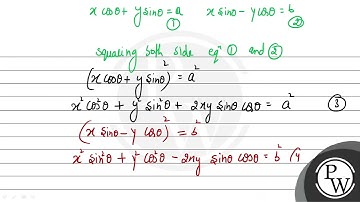 x cosθ + y sinθ = a ① x sinθ - y cosθ = b ②
squaring both side eqⁿ ① and ②
(x cosθ + y sinθ)² = a²
x² cos²θ + y² sin²θ + 2xy sinθ cosθ = a² ③
(x sinθ - y cosθ)² = b²
x² sin²θ + y² cos²θ - 2xy sinθ cosθ = b² (4
PW